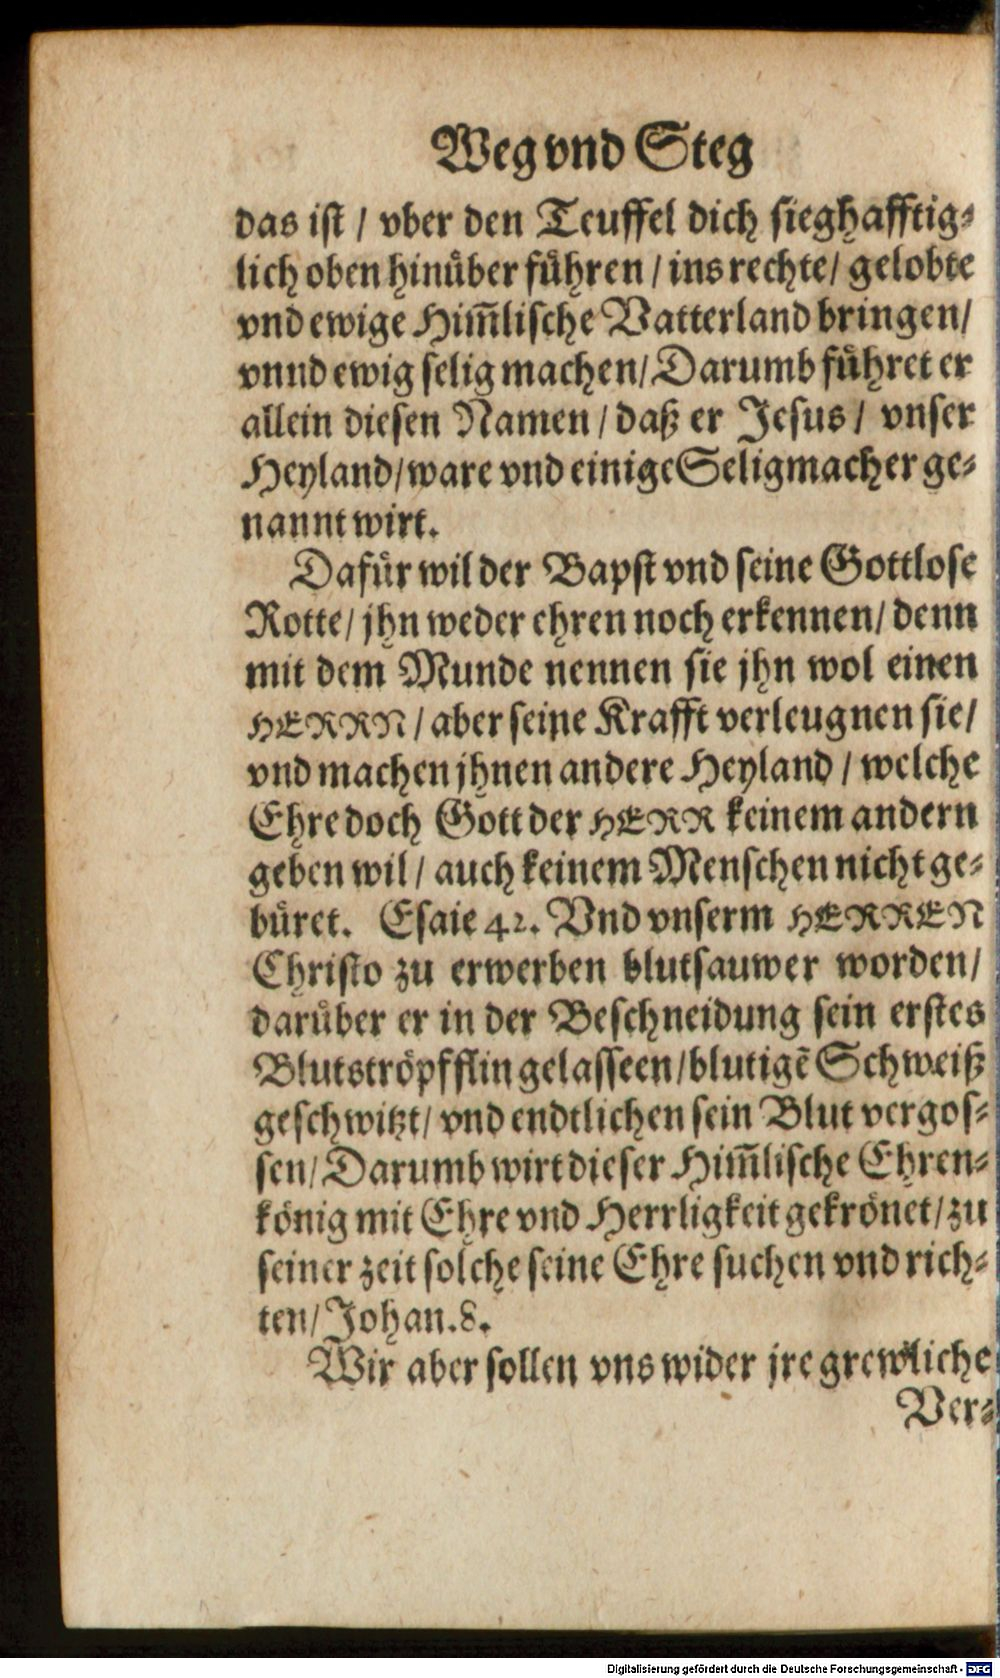 Weg vnd Steg
das ist / vber den Teuffel dich sieghafftig⸗
lich oben hinuͤber fuͤhren / ins rechte / gelobte
vnd ewige Him̃lische Vatterland bringen /
vnnd ewig selig machen / Darumb fuͤhret er
allein diesen Namen / daß er Jesus / vnser
Heyland / ware vnd einige Seligmacher ge⸗
nannt wirt.
Dafuͤr wil der Bapst vnd seine Gottlose
Rotte / jhn weder ehren noch erkennen / denn
mit dem Munde nennen sie jhn wol einen
HERRN / aber seine Krafft verleugnen sie /
vnd machen jhnen andere Heyland / welche
Ehre doch Gott der HERR keinem andern
geben wil / auch keinem Menschen nicht ge⸗
buͤret. Esaie 42. Vnd vnserm HERREN
Christo zu erwerben blutsauwer worden /
daruͤber er in der Beschneidung sein erstes
Blutstroͤpfflin gelasseen / blutigẽ Schweiß
geschwitzt / vnd endtlichen sein Blut vergos⸗
sen / Darumb wirt dieser Him̃lische Ehren⸗
koͤnig mit Ehre vnd Herrligkeit gekroͤnet / zu
seiner zeit solche seine Ehre suchen vnd rich⸗
ten / Johan. 8.
Wir aber sollen vns wider jre grewliche
Ver⸗
Digitalisierung gefördert durch die Deutsche Forschungsgemeinschaft - DFG